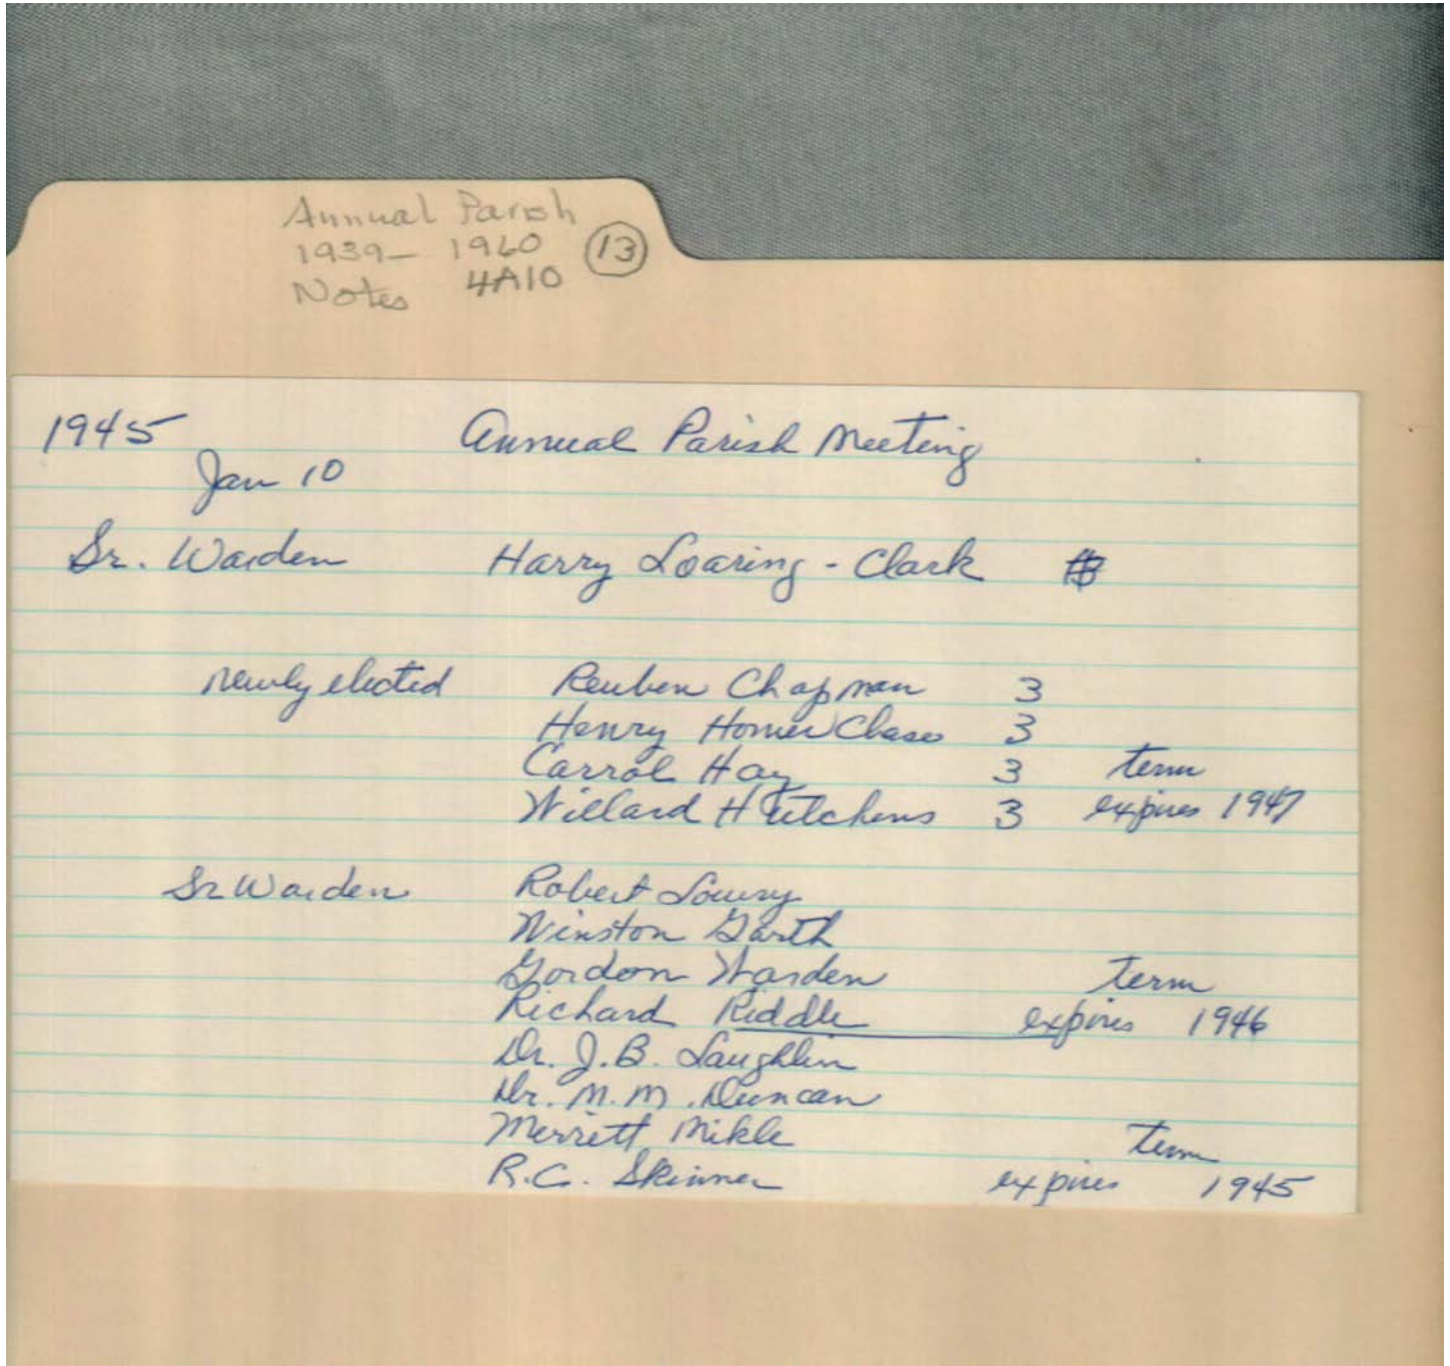 Annual Parish
1939- 1960 13
Notes 4A10
1945 Annual Parish Meeting
Jan 10
Sr. Warden Harry Loaring-Clark
newly elected Reuben Chapman 3
Henry Homer Chase 3
Carrol Hay 3 term
Willard Hutchens 3 expires 1947
Sr Warden Robert Lowry
Winston Garth
Gordon Warden term
Richard Riddle expires 1946
Dr. J.B. Laughlin
Dr. M.M. Duncan
Merritt Mikle term
R.C. Skinner expires 1945